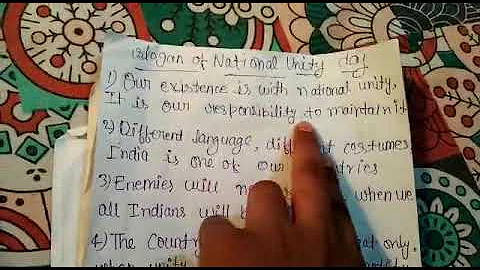 slogan of National Unity day
1) Our existence is with national unity,
It is our responsibility to maintain it
2) Different language, diff nt costumes
India is one of our ntries
3) Enemies will when we
all Indians will
4) The Countr at only.
when unity